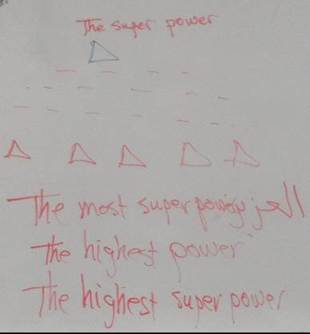 The super power
The most super power العز
the highest power
The highest super power